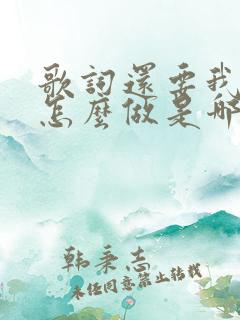 歌詞還要我
怎麼做是哪
韩秉志
未经同意禁止转载